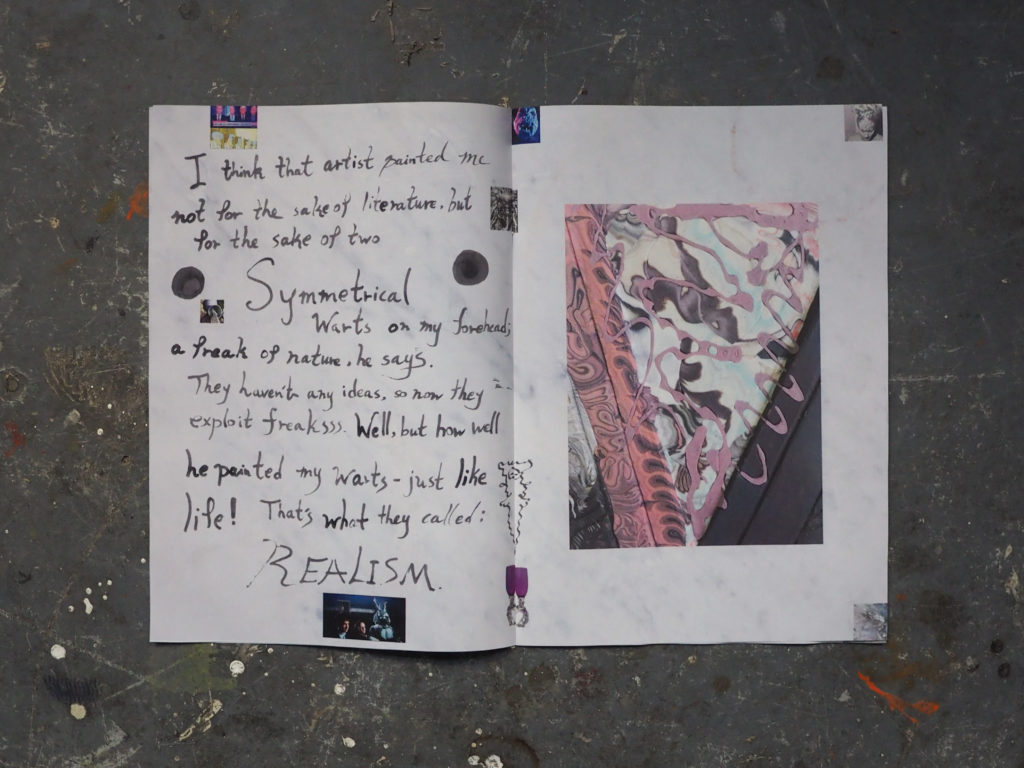 I think that artist painted me
not for the sake of literature, but
for the sake of two
Symmetrical
Warts on my forehead;
a freak of nature, he says.
They haven't any ideas, so now they
exploit freaksss. Well, but how well
he painted my warts - just like
life! That's what they called:
REALISM.